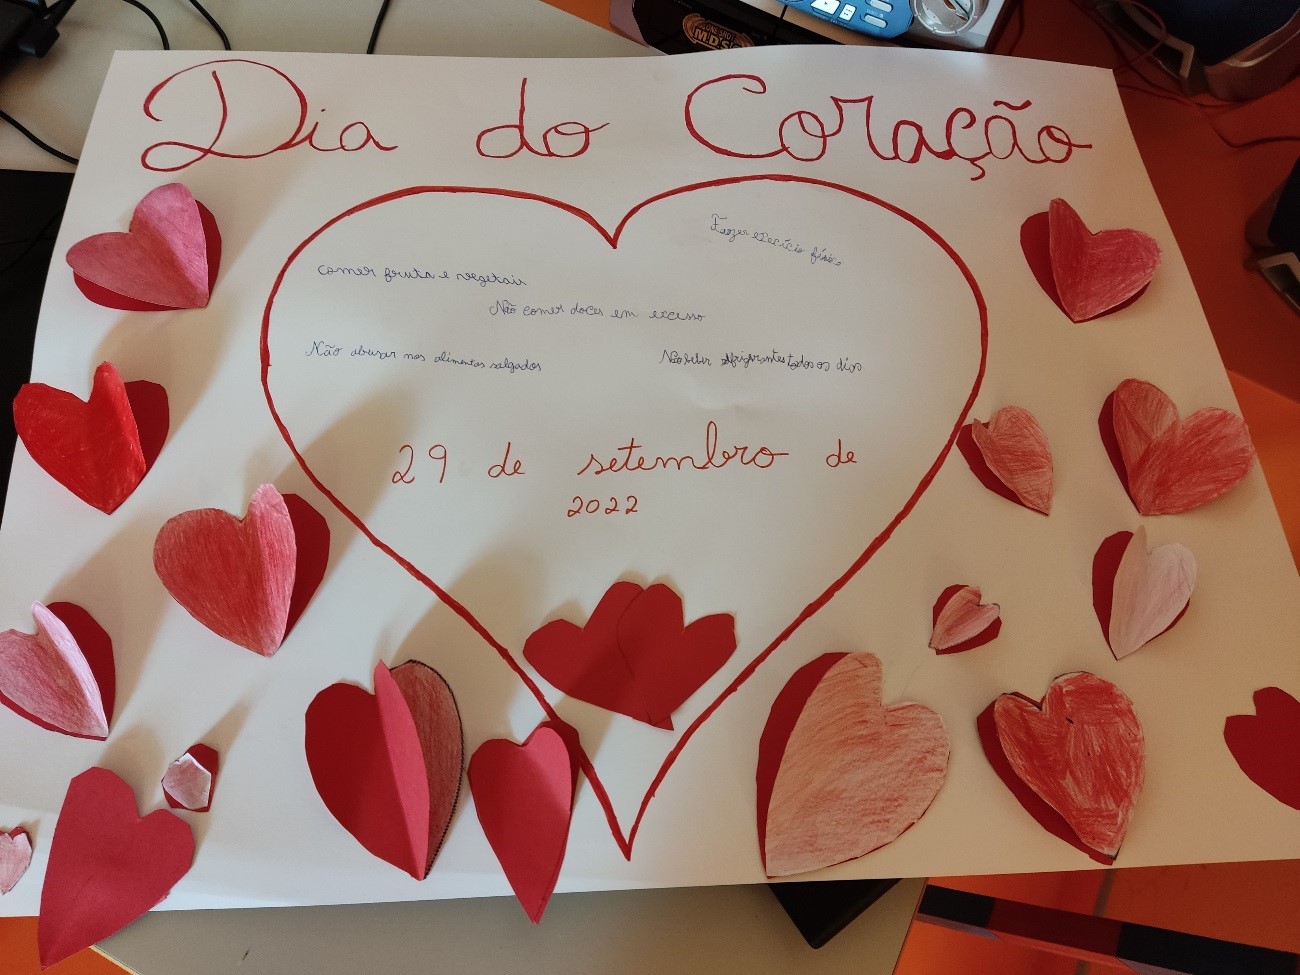 Dia do Coração
Fazer execício físico
comer fruta e vegetais
Não comer doces em excesso
Não abusar nos alimentos salgados
Não beber refrigerantes todos os dias
29 de setembro de
2022